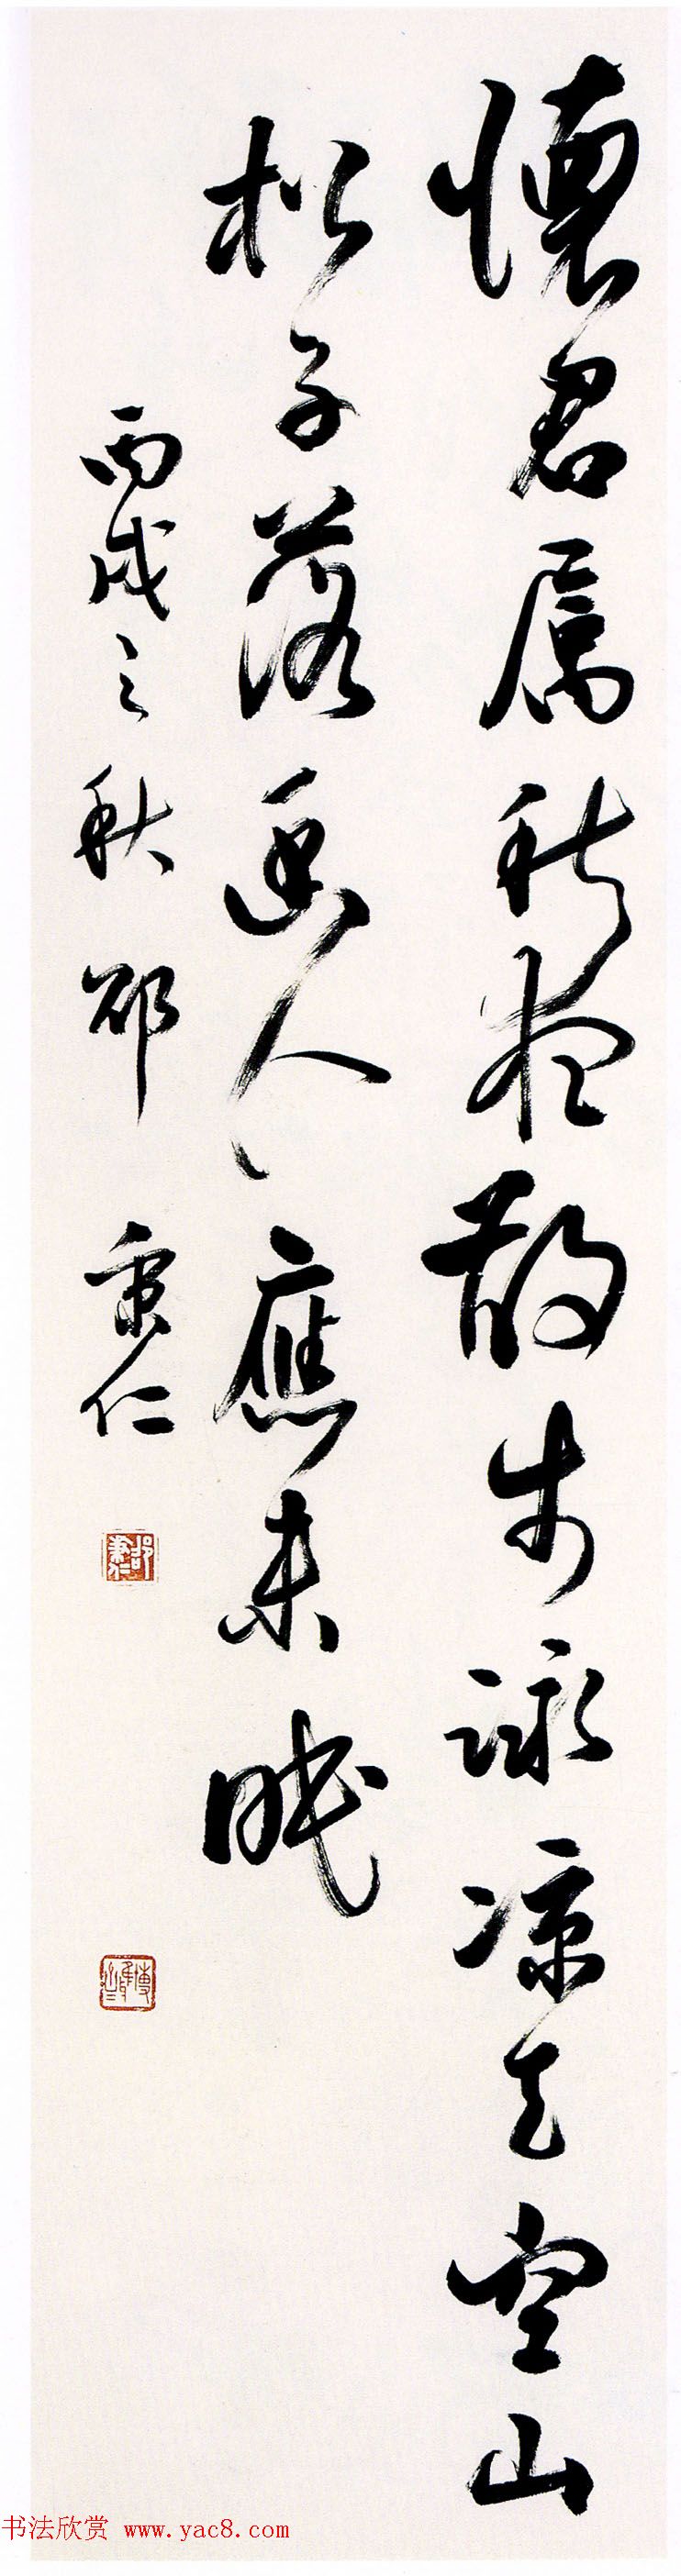 懷君屬秋夜散步詠凉天空山
松子落幽人應未眠
丙戌之秋邵秉仁
邵秉仁
书法欣赏 www.yac8.com